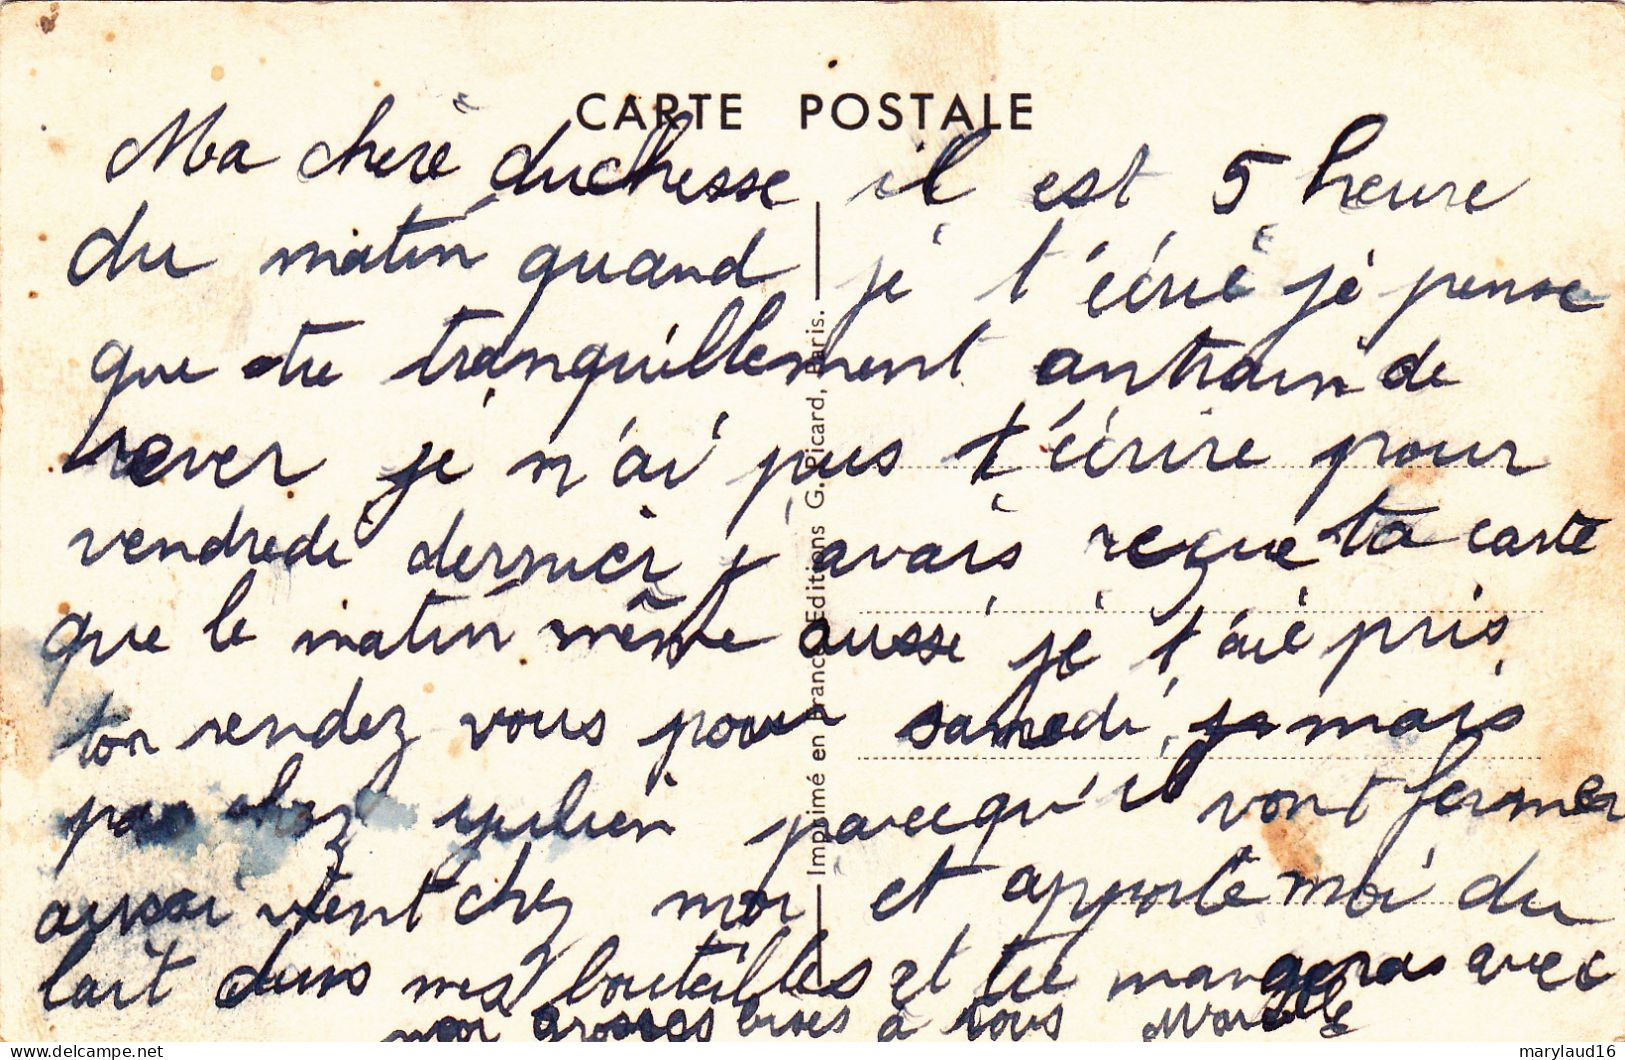 CARTE POSTALE
Ma chere duchesse il est 5 heure
du matin quand je t'écrie je pense
que tu tranquillement antrain de
rever je n'ai pus t'écrire pour
vendredi dernier j avais reçue ta carte
que le matin même aussi je t'aie pris
ton rendez vous pour samedi, mais
pas chez parcequ'il vont fermer
aussi vient chez moi et apporte moi du
lait dans mes bouteilles et tu mangeras avec
moi grosses bises a tous Marcelle
Imprimé en France Editions G. Picard, Paris.
marylaud16